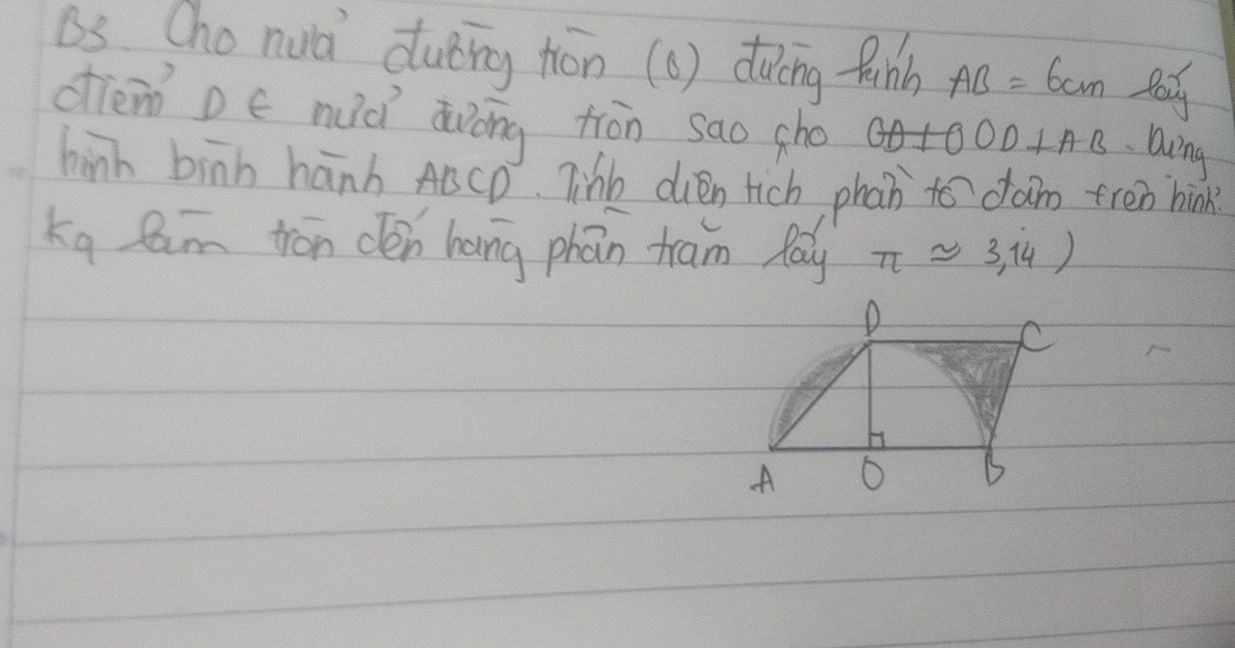 B3. Cho nửa đường tròn (O) đường kính AB = 6cm lấy
điểm D ∈ nửa đường tròn sao cho OD⊥AB. Dựng
hình bình hành ABCD. Tính diện tích phần tô đậm trên hình.
Kq làm tròn đến hàng phần trăm lấy π ≈ 3,14 )
D C
A O B